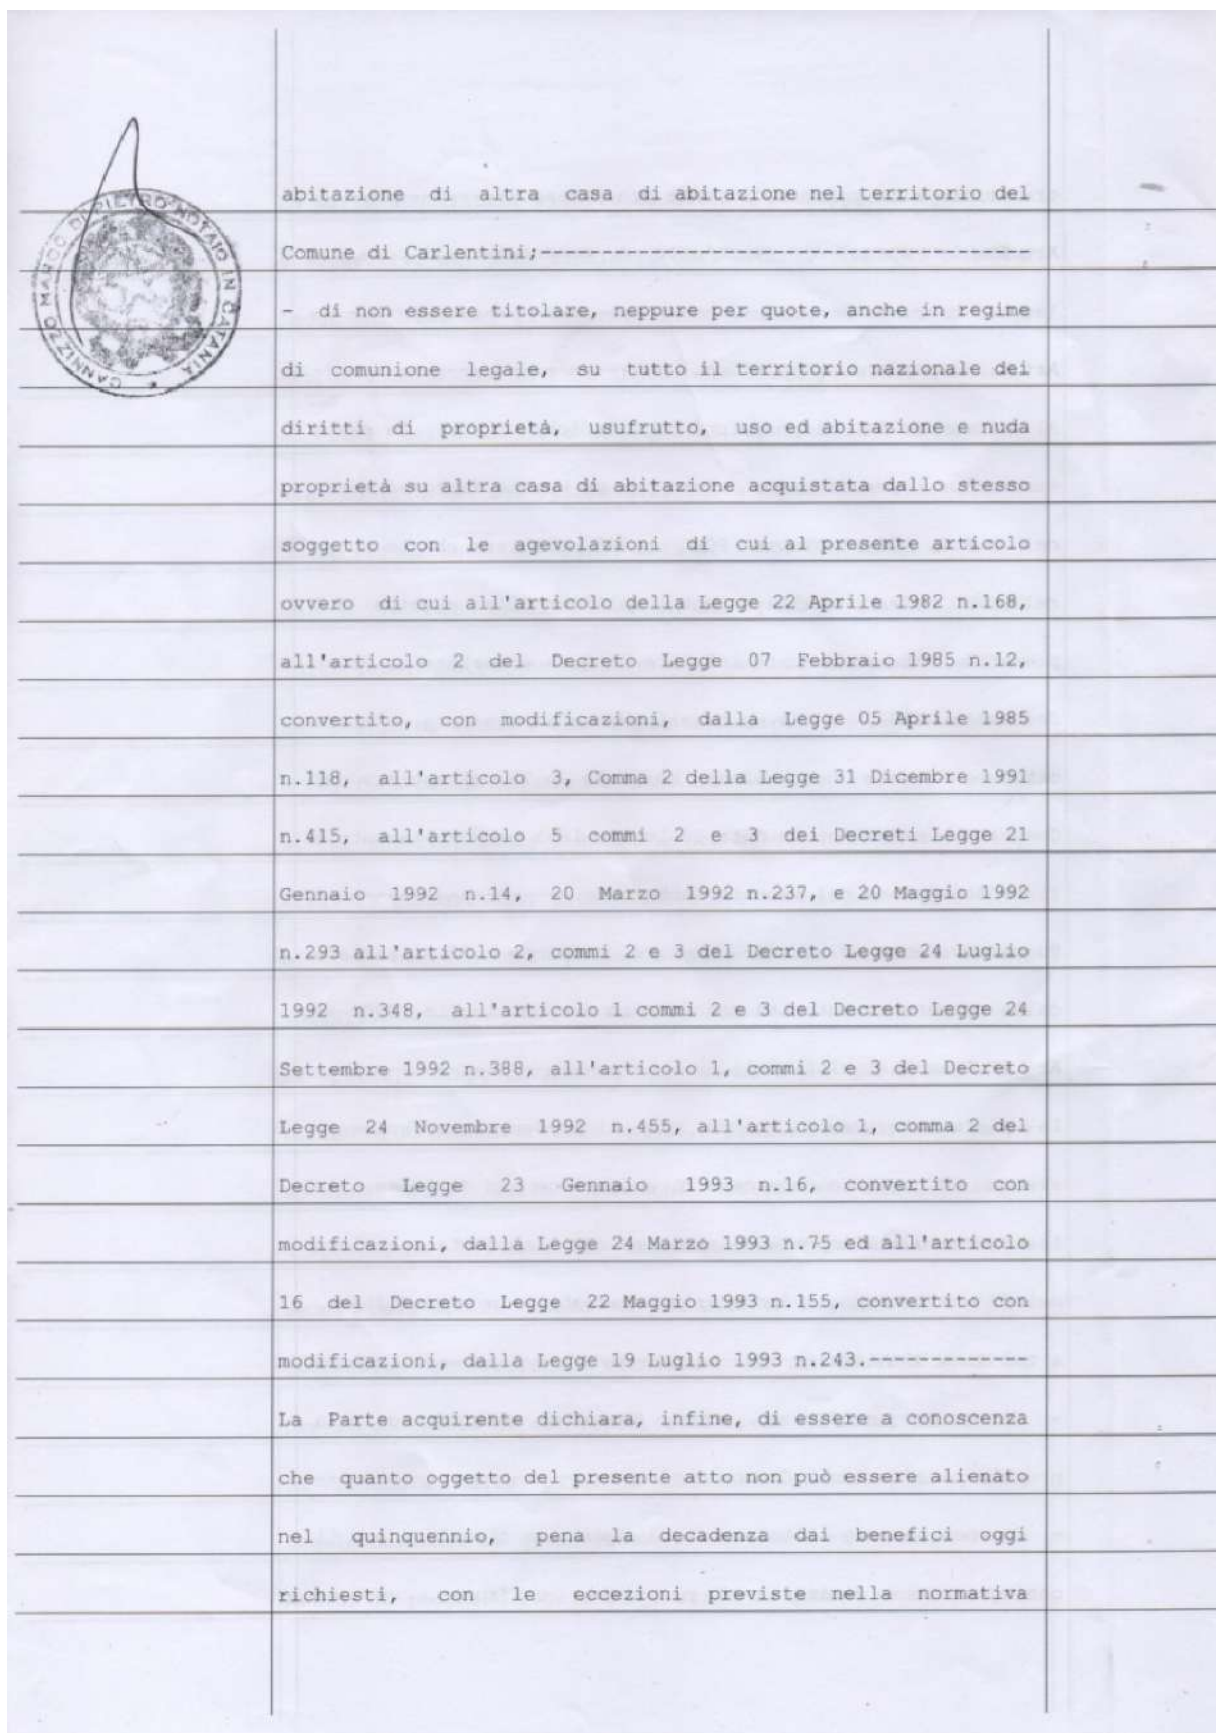 CANNIZZO MARCO DI PIETRO NOTAIO IN CATANIA
abitazione di altra casa di abitazione nel territorio del
Comune di Carlentini;----------------------------------------
- di non essere titolare, neppure per quote, anche in regime
di comunione legale, su tutto il territorio nazionale dei
diritti di proprietà, usufrutto, uso ed abitazione e nuda
proprietà su altra casa di abitazione acquistata dallo stesso
soggetto con le agevolazioni di cui al presente articolo
ovvero di cui all'articolo della Legge 22 Aprile 1982 n.168,
all'articolo 2 del Decreto Legge 07 Febbraio 1985 n.12,
convertito, con modificazioni, dalla Legge 05 Aprile 1985
n.118, all'articolo 3, Comma 2 della Legge 31 Dicembre 1991
n.415, all'articolo 5 commi 2 e 3 dei Decreti Legge 21
Gennaio 1992 n.14, 20 Marzo 1992 n.237, e 20 Maggio 1992
n.293 all'articolo 2, commi 2 e 3 del Decreto Legge 24 Luglio
1992 n.348, all'articolo 1 commi 2 e 3 del Decreto Legge 24
Settembre 1992 n.388, all'articolo 1, commi 2 e 3 del Decreto
Legge 24 Novembre 1992 n.455, all'articolo 1, comma 2 del
Decreto Legge 23 Gennaio 1993 n.16, convertito con
modificazioni, dalla Legge 24 Marzo 1993 n.75 ed all'articolo
16 del Decreto Legge 22 Maggio 1993 n.155, convertito con
modificazioni, dalla Legge 19 Luglio 1993 n.243.-------------
La Parte acquirente dichiara, infine, di essere a conoscenza
che quanto oggetto del presente atto non può essere alienato
nel quinquennio, pena la decadenza dai benefici oggi
richiesti, con le eccezioni previste nella normativa